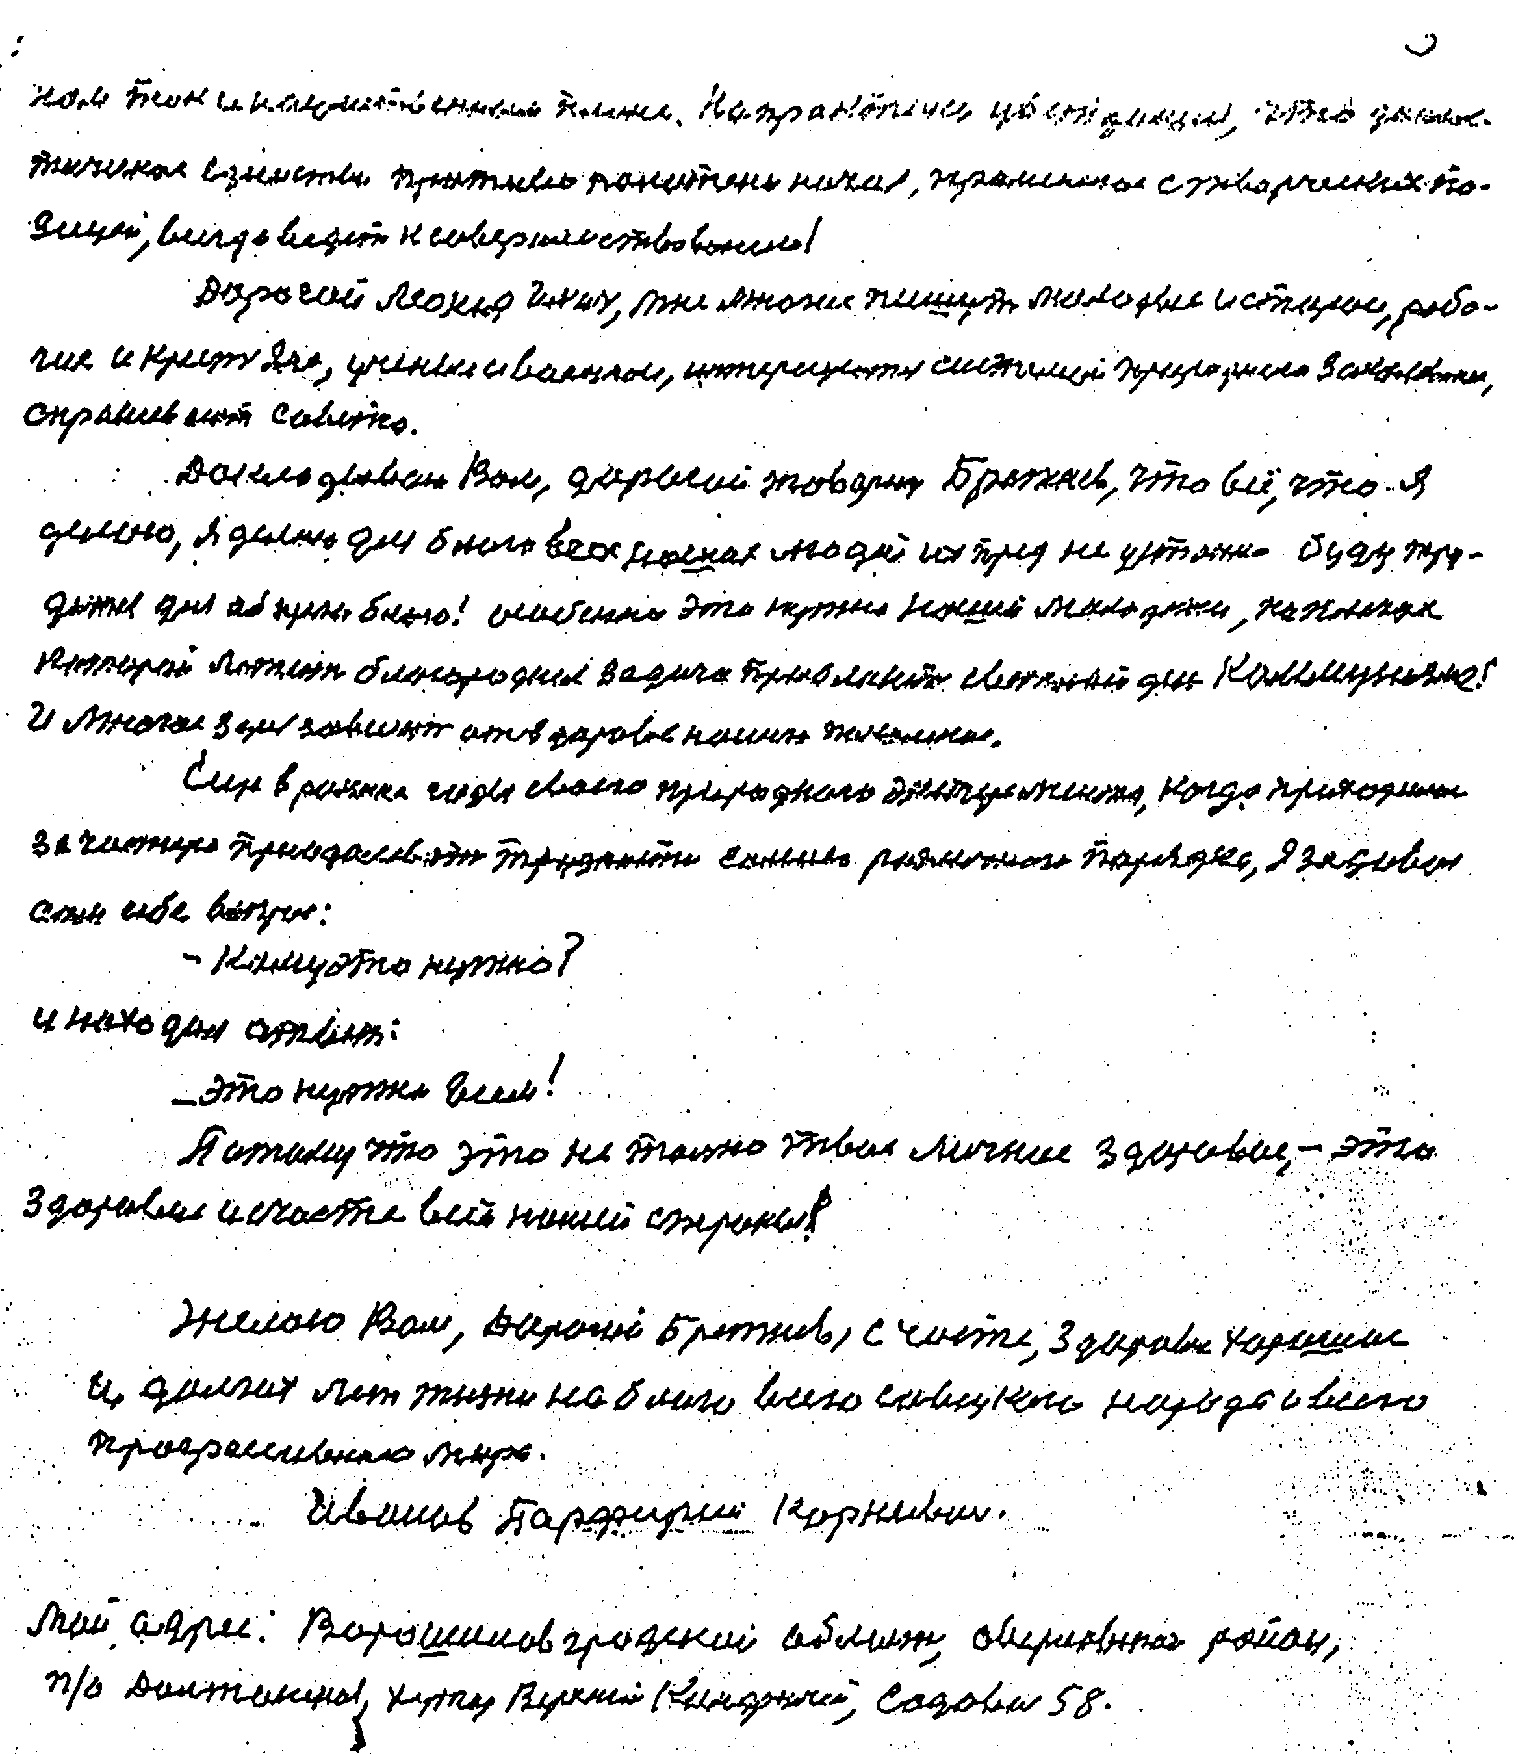 ном так и качественном плане. На практике убеждаюсь, что диалек-
тическое единство противоположных начал, применяемое с творческих по-
зиций, всегда ведет к совершенствованию!
Дорогой Леонид Ильич, мне многие пишут молодые и старые, рабо-
чие и крестьяне, ученые и военные, интересуются системой природного закаливания,
спрашивают совета.
Докладываю Вам, дорогой товарищ Брежнев, что всё, что я
делаю, я делаю для блага всех людей и впредь неустанно буду тру-
диться для их блага! особенно это нужно нашей молодежи, на плечах
которой лежит благородная задача приблизить светлый день Коммунизма!
И многое здесь зависит от здоровья наших поколений.
Еще в ранние годы своего природного эксперимента, когда приходилось
зачастую преодолевать трудности самого различного порядка, я задавал
сам себе вопрос:
- Кому это нужно?
и находил ответ:
- Это нужно всем!
Потому что это не только твое личное здоровье, - это
здоровье и счастье всей нашей страны!
Желаю Вам, Дорогой Брежнев, счастья, здоровья хорошего
и долгих лет жизни на благо всего советского народа и всего
прогрессивного мира.
Иванов Парфирий Корнеевич.
Мой адрес: Ворошиловградской область, Свердловский район,
п/о Должанский, хутор Верхний Кондрючий, Садовая 58.